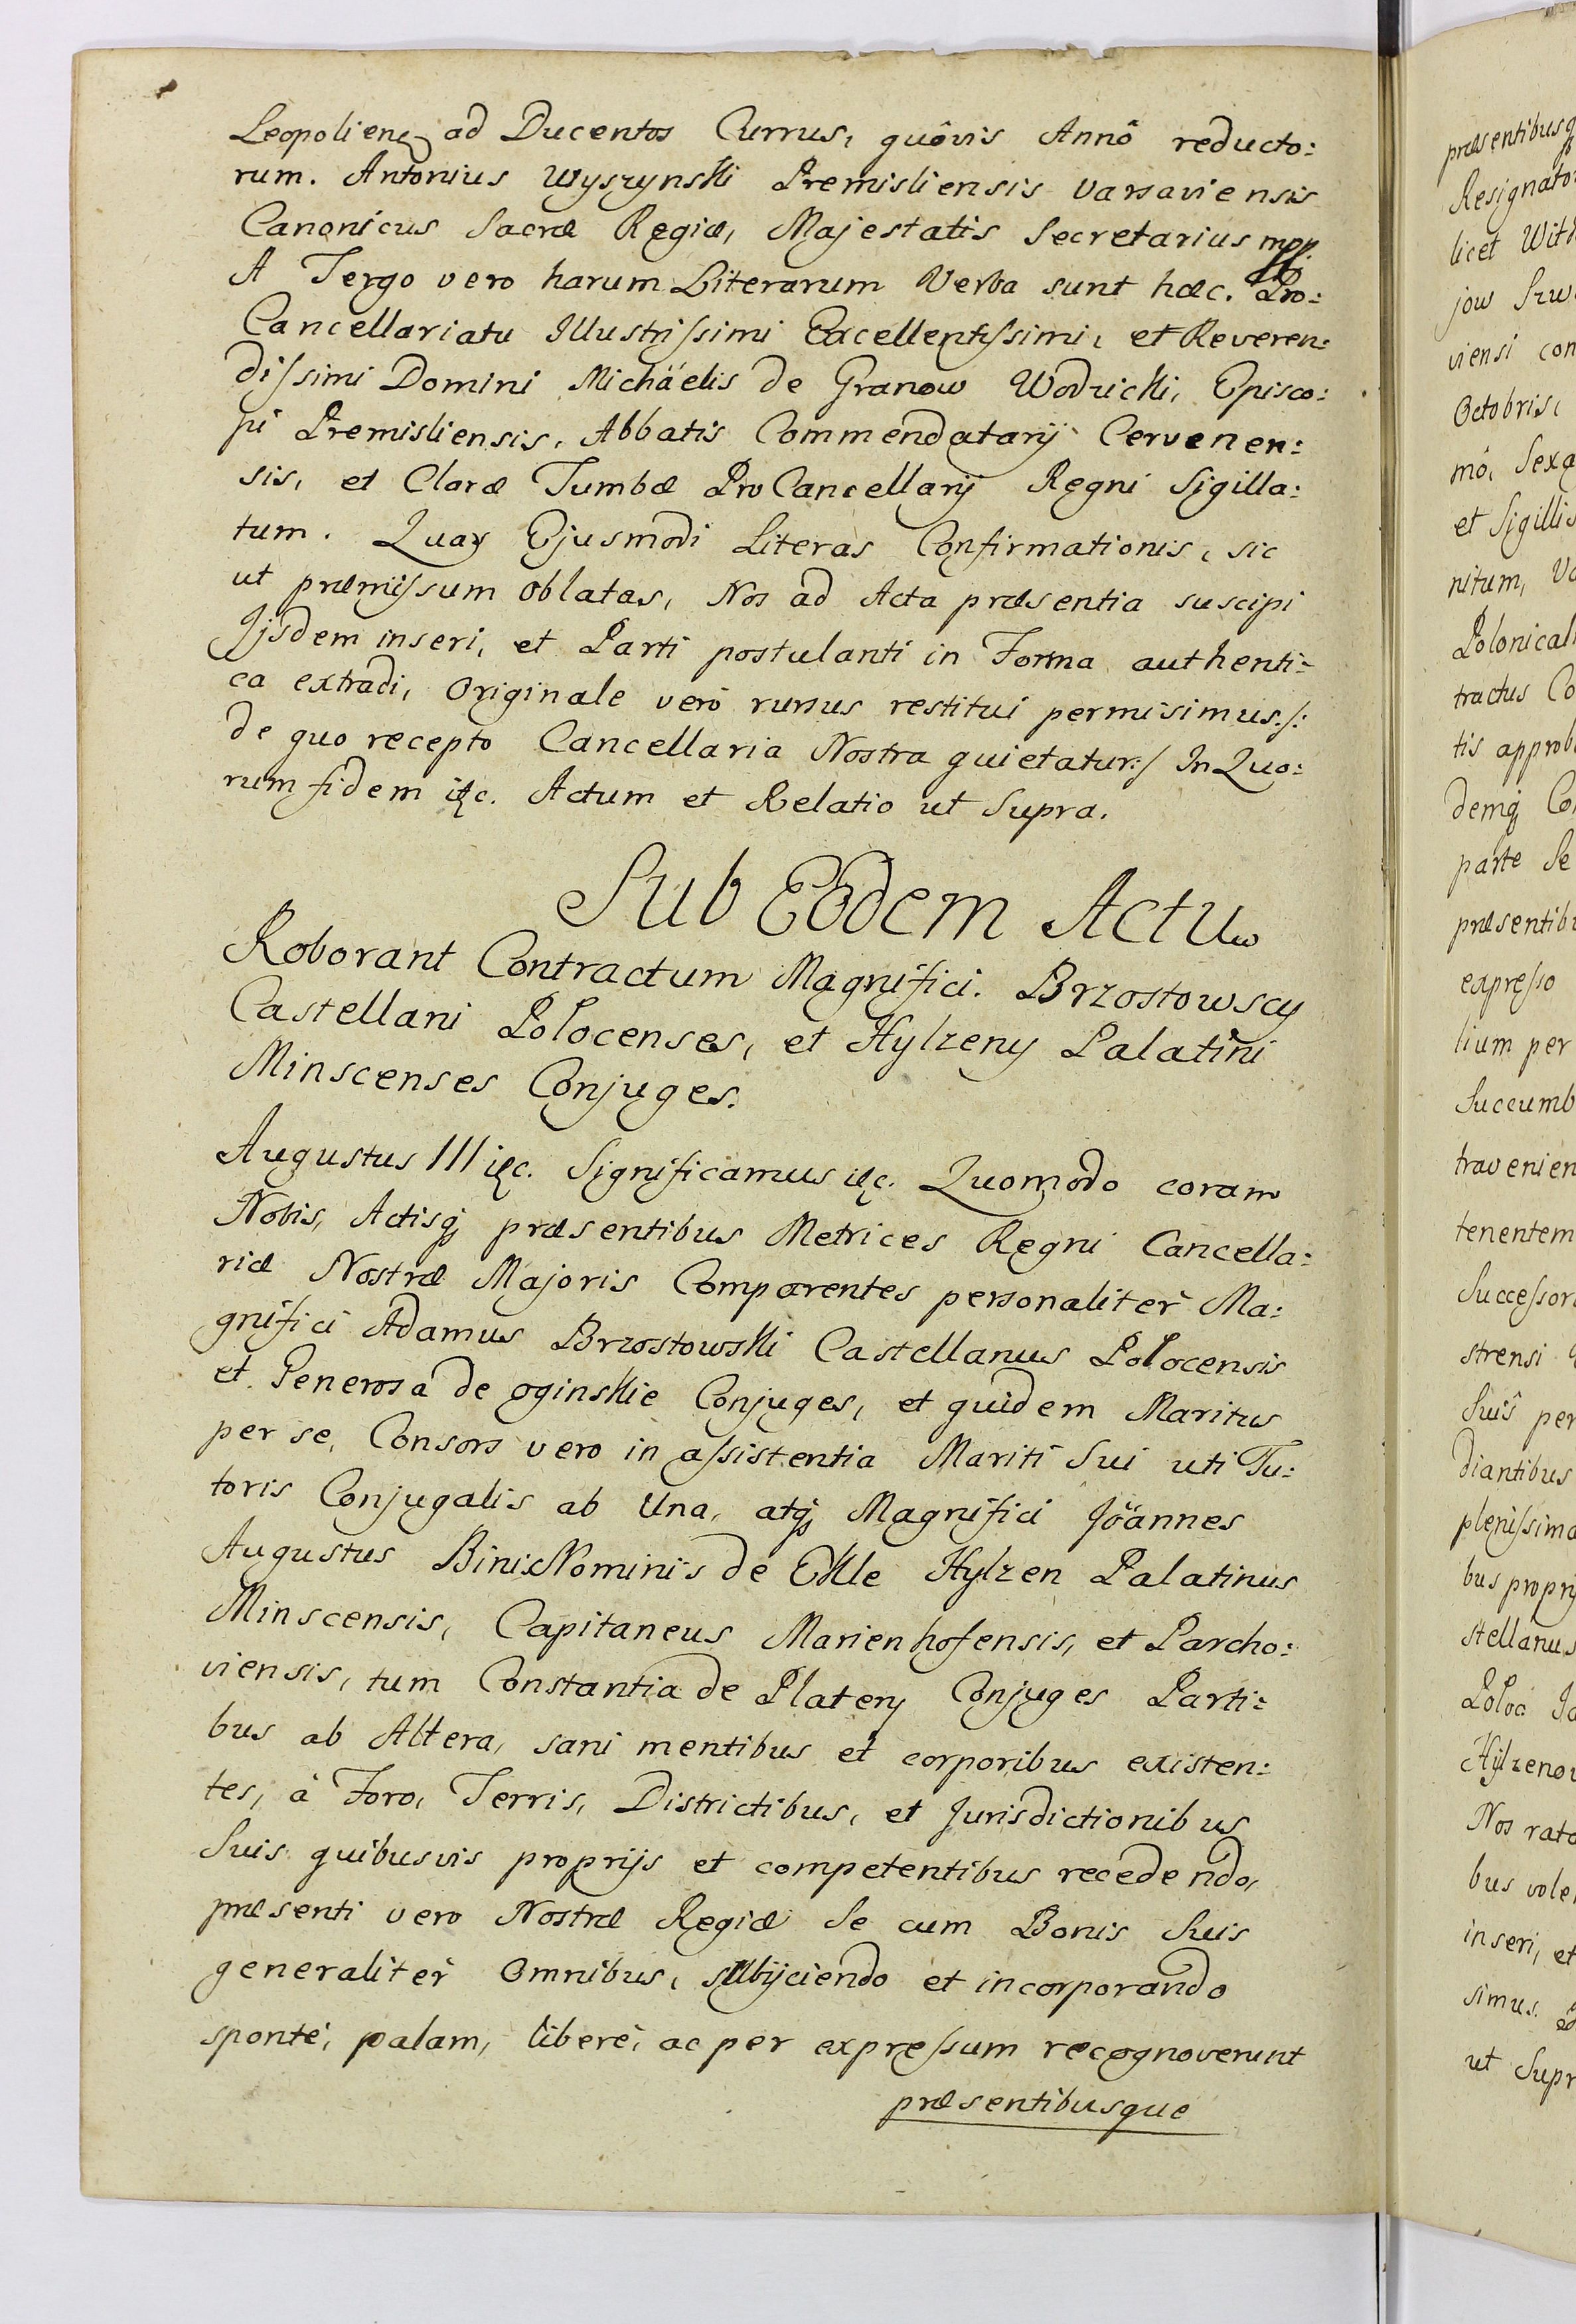 Leopolien̄ ad Ducentos Currus, quôvis Annô reducto:
rum. Antonius Wyszynski Premisliensis Varsaviensis
Canonicus Sacræ Regiæ, Majestatis Secretarius mpp
A Tergo vero harum Literarum Verba sunt hæc. Pro:
Cancellariatu Illustrissimi Excellentissimi, et Reveren:
dissimi Domini Michäelis de Granow Wodzicki, Episco:
pi Premisliensis, Abbatis Commendatarij Cervenen:
sis, et Claræ Tumbæ ProCancellarij Regni Sigilla:
tum. Quas Ejusmodi Literas Confirmationis, sic
ut præmissum oblatas, Nos ad Acta præsentia suscipi
Ijsdem inseri, et Parti postulanti in Forma authenti:
ca extradi, Originale verò rursus restitui permisimus./:
de quo recepto Cancellaria Nostra quietatur:/ In Quo:
rum fidem etc. Actum et Relatio ut Supra.
Sub Eödem Actu
Roborant Contractum Magnifici. Brzostowscy
Castellani Polocenses, et Hylzeny Palatini
Minscenses Conjuges.
Augustus III etc. Significamus etc. Quomodo coram
Nobis, Actisq; præsentibus Metrices Regni Cancella:
riæ Nostræ Majoris Comparentes personalitèr Ma:
gnifici Adamus Brzostowski Castellanus Polocensis
et Generosa de Oginskie Conjuges, et quidem Maritus
per se, Consors vero in assistentia Mariti Sui uti Tu:
toris Conjugalis ab Una, atq; Magnifici Jöannes
Augustus Binis Nominis de Ekle Hylzen Palatinus
Minscensis, Capitaneus Marienhofensis, et Parcho:
viensis, tum Constantia de Platery Conjuges Parti:
bus ab Altera, sani mentibus et corporibus existen:
tes, à Foro, Terris, Districtibus, et Jurisdictionibus
Suis quibusvis proprijs et competentibus recedendo,
præsenti vero Nostræ Regiæ Se cum Bonis Suis
generalitèr Omnibus, subijciendo et incorporando
spontè, palam, liberè, ac per expressum recognoverunt
præsentibusque
præsentibusq
Resignato
licet Wit
jow Szw
viensi con
Octobris,
mô, Sexa
et Sigillis
nitum, Va
Polonicali
tractus Co
tis approb
demq; Co
parte Se
præsentibu
expresso
lium per
Succumb
travenien
tenentem
Successor
strensi
Suis per
diantibus
plenissima
bus proprij
stellanus
Poloc: Jo
Hylzenow
Nos rato
bus vole
inseri, et
simus.
ut Supr